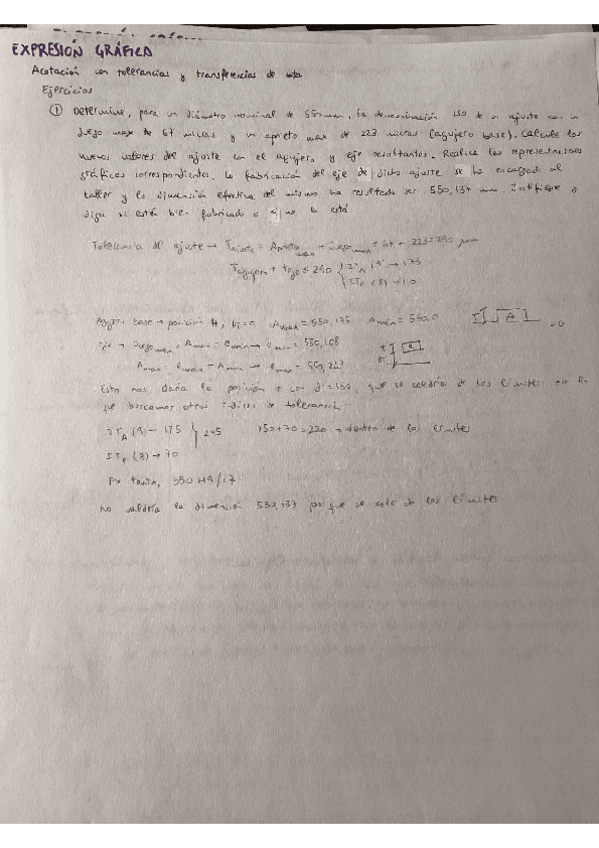 EXPRESIÓN GRÁFICA
Acotación con tolerancias y transferencias de cotas
Ejercicios
① Determine, para un diámetro nominal de 550 mm, la denominación ISO de un ajuste con un
juego max de 67 micras y un aprieto max de 223 micras (agujero base). Calcule los
nuevos valores del ajuste con el agujero y eje resultantes. Realice las representaciones
gráficas correspondientes. La fabricación del eje de dicho ajuste se ha encargado al
taller y la dimensión efectiva del mismo ha resultado ser 550,137 mm. Justifique o
diga si está bien fabricado o si no lo está
Tolerancia del ajuste → Tajuste = Aprieto max + Juego max = 67 + 223 = 290 μm
Tagujero + Teje ≤ 290 { ITA (9) → 175
ITe (8) → 110
Agujero base → posición H, Di=0 Amax = 550,175 Amin = 550,0
Eje → Juego max = Amax - emin → emin = 550,108
Amax = emax - Amin → emax = 550,223
Esto nos daría la posición con di=150, que se saldría de los límites por lo
que buscamos otros índices de tolerancia
ITA (9) → 175 } 245 150+70=220 → dentro de los límites
ITe (7) → 70
Por tanto, 550 H9/
No valdría la dimensión 550,137 porque se sale de los límites